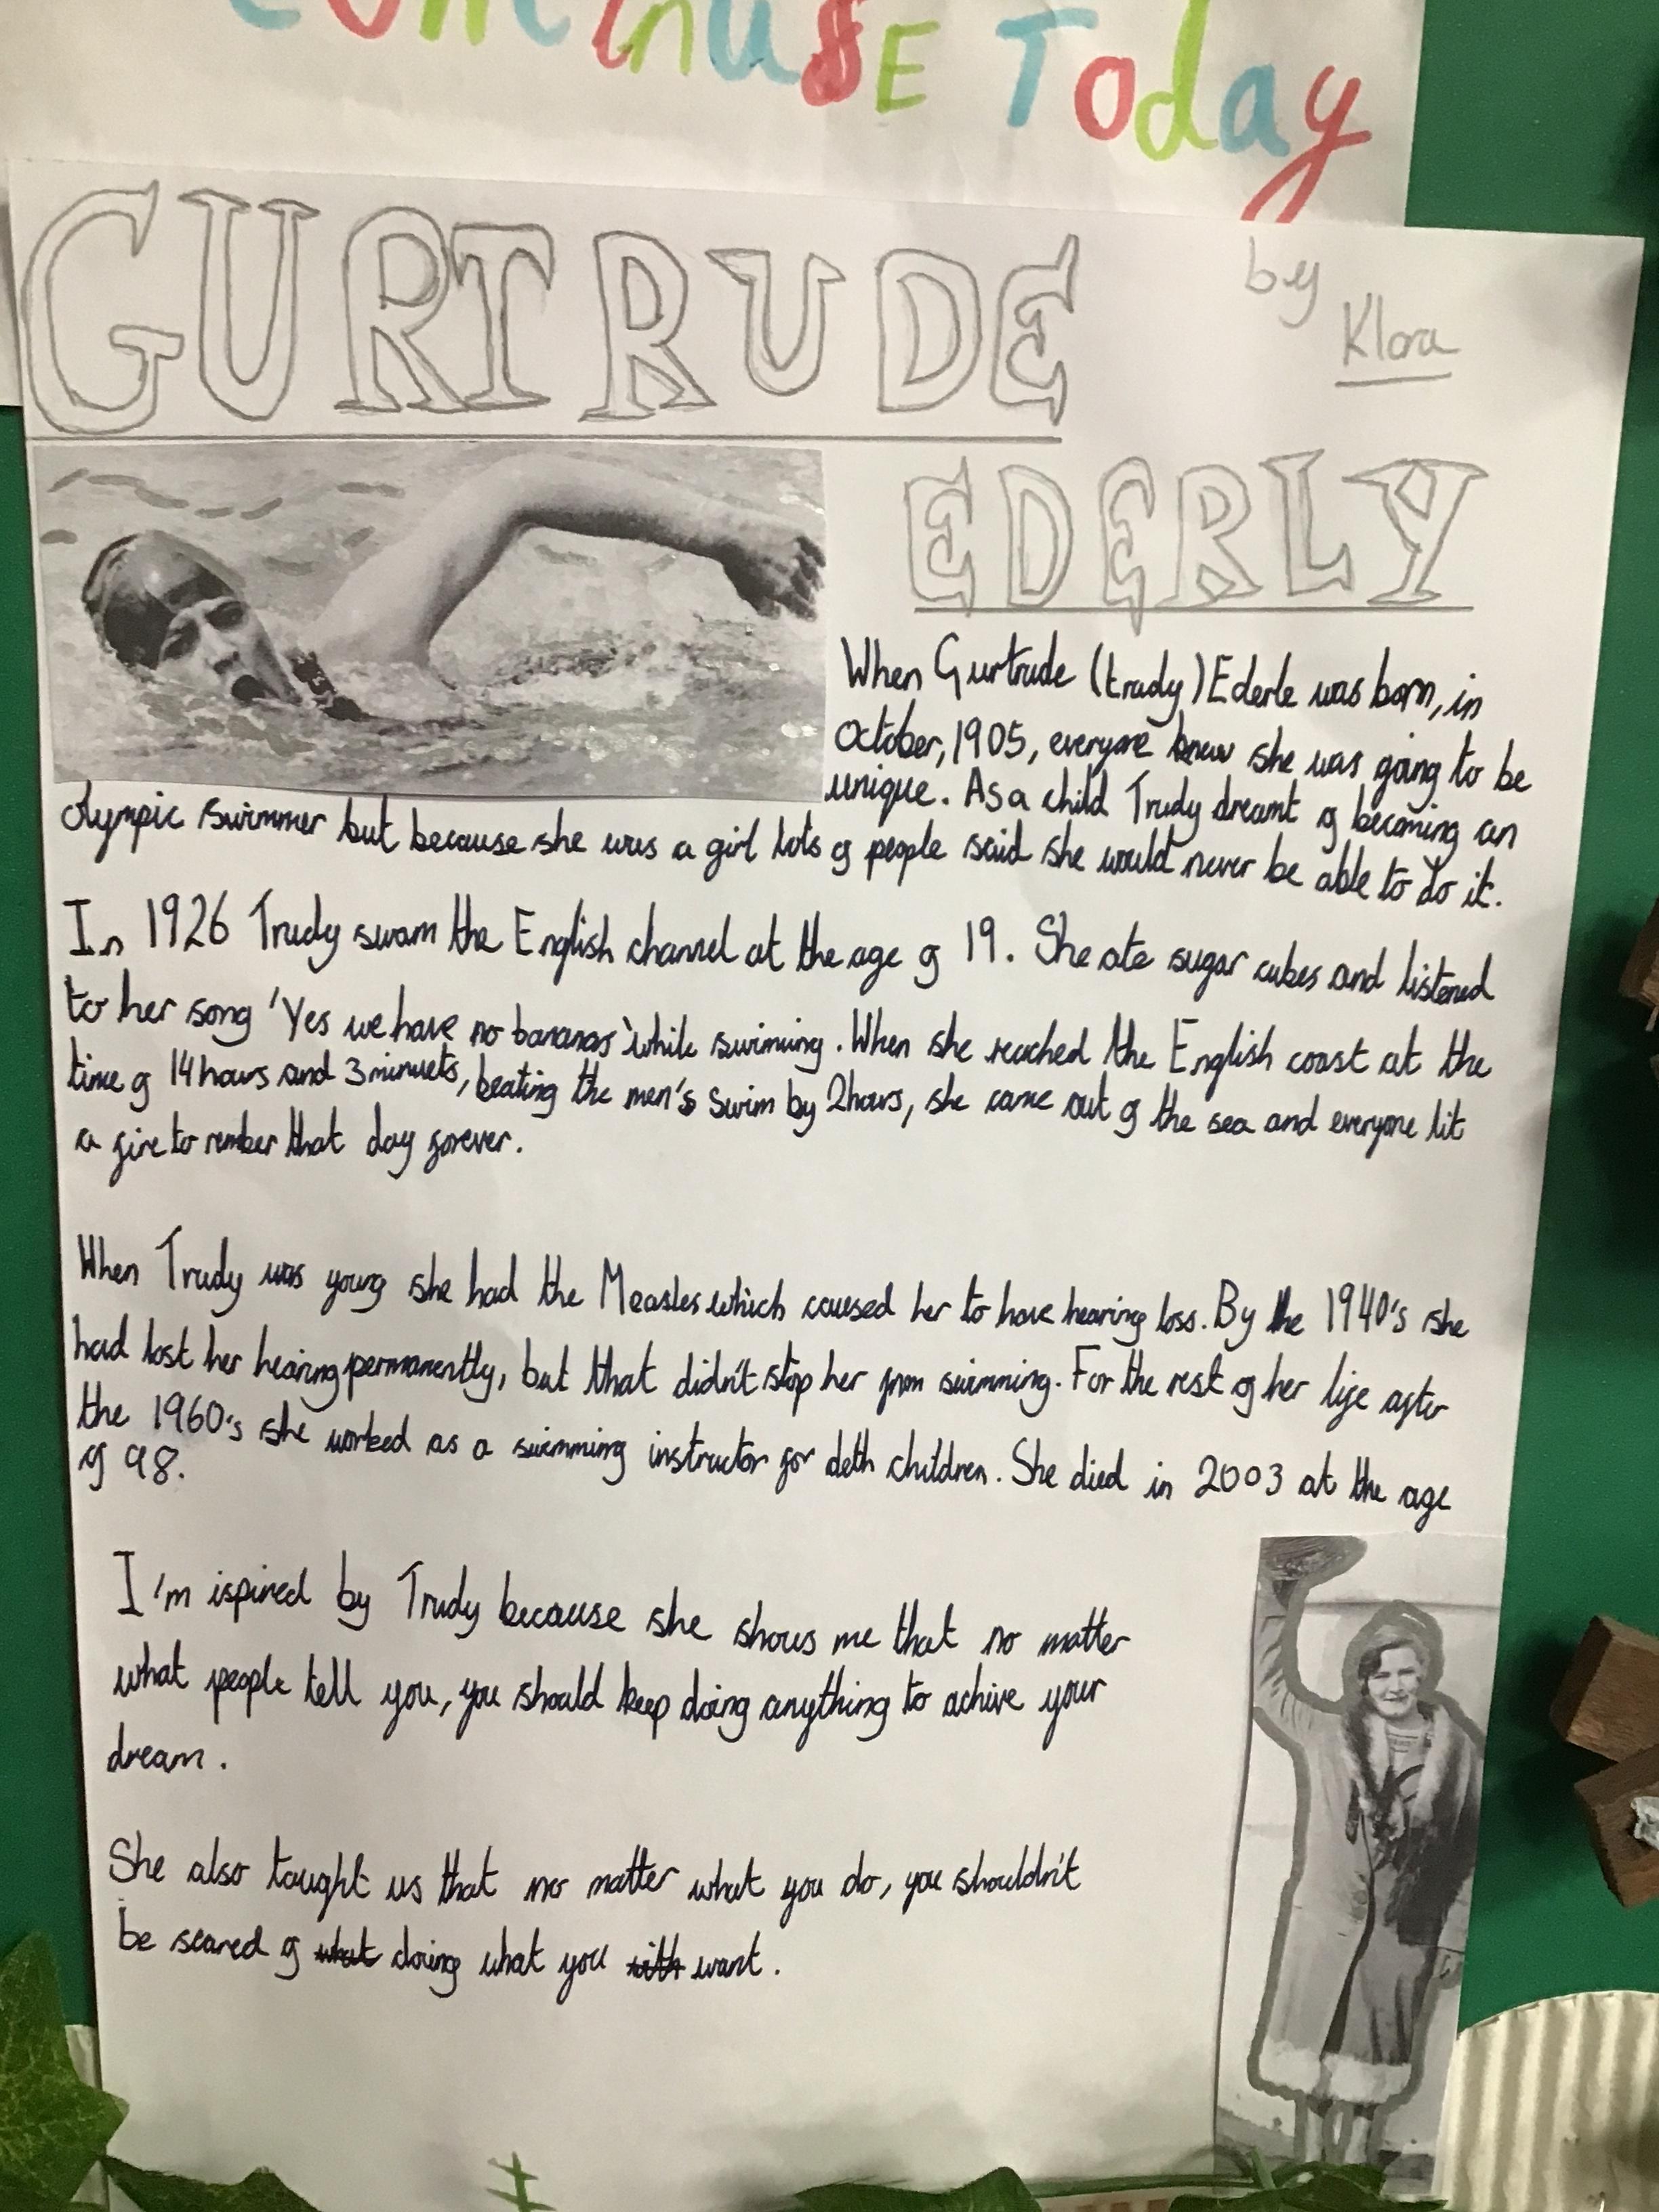 CONTINUSE Today
GURTRUDE
by
Klora
EDERLY
When Gurtrude (trudy) Ederle was born, in
October, 1905, everyone knew she was going to be
unique. As a child Trudy dreamt of becoming an
olympic swimmer but because she was a girl lots of people said she would never be able to do it.
In 1926 Trudy swam the English channel at the age of 19. She ate sugar cubes and listened
to her song 'Yes we have no bananas' while swimming. When she reached the English coast at the
time of 14 hours and 3 minuets, beating the men's swim by 2 hours, she came out of the sea and everyone lit
a fire to rember that day forever.
When Trudy was young she had the Measles which caused her to have hearing loss. By the 1940's she
had lost her hearing permanently, but that didn't stop her from swimming. For the rest of her life after
the 1960's she worked as a swimming instructor for deth children. She died in 2003 at the age
of 98.
I'm ispired by Trudy because she shows me that no matter
what people tell you, you should keep doing anything to achive your
dream.
She also taught us that no matter what you do, you shouldn't
be scared of what doing what you with want.